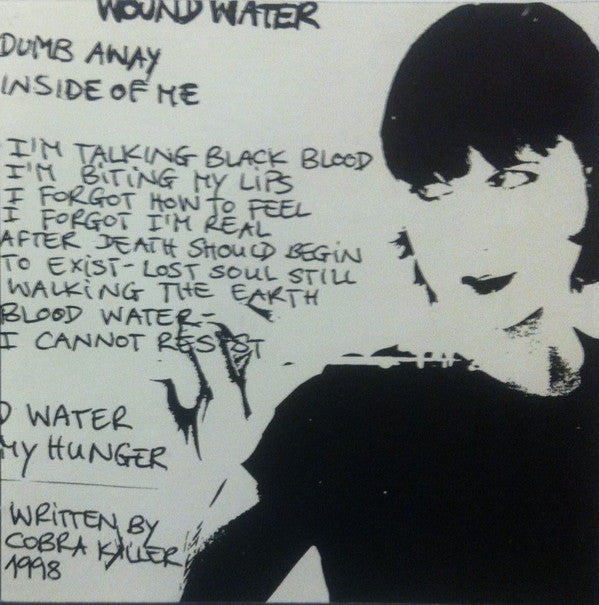 WOUND WATER
DUMB AWAY
INSIDE OF ME
I'M TALKING BLACK BLOOD
I'M BITING MY LIPS
I FORGOT HOW TO FEEL
I FORGOT I'M REAL
AFTER DEATH SHOULD BEGIN
TO EXIST - LOST SOUL STILL
WALKING THE EARTH
BLOOD WATER -
I CANNOT RESIST
D WATER
MY HUNGER
WRITTEN BY
COBRA KILLER
1998